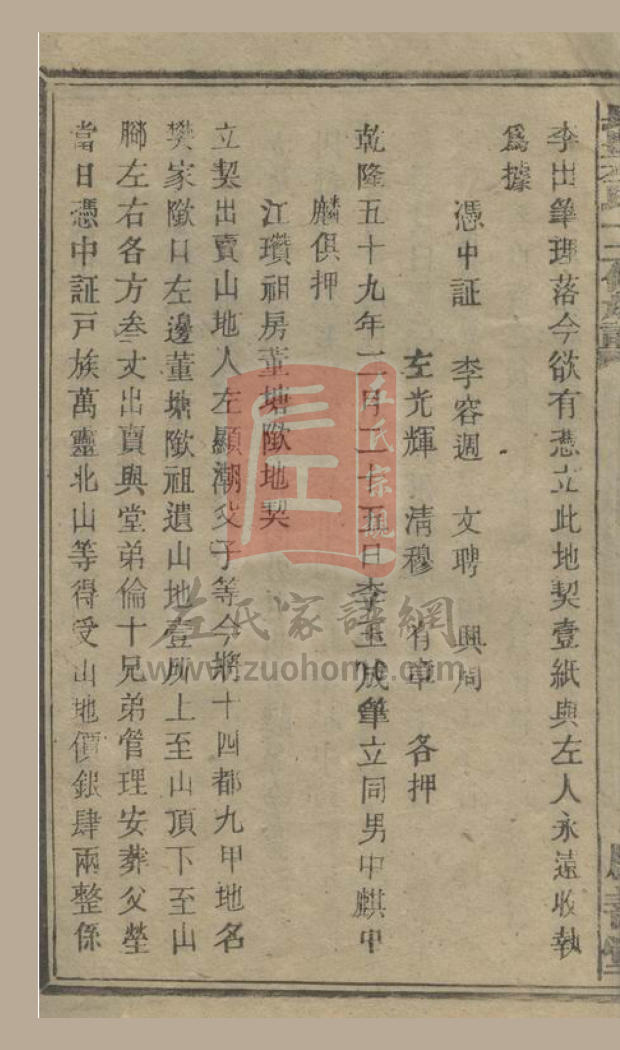 李出筆理落今欲有憑立此地契壹紙與左人永遠收執
爲據
憑中証 李容週 文聘 興周
左光輝 清穆 有章 各押
乾隆五十九年二月二十五日李玉成筆立同男中麒中
麟俱押
江瓚祖房董塘歘地契
立契出賣山地人左顯潮父子等今將十四都九甲地名
樊家歘口左邊董塘歘祖遺山地壹所上至山頂下至山
腳左右各方叁丈出賣與堂弟倫十兄弟管理安葬父塋
當日憑中証戸族萬靈北山等得受山地價銀肆兩整係
左氏宗親
左氏家譜網
www.izuohome.com